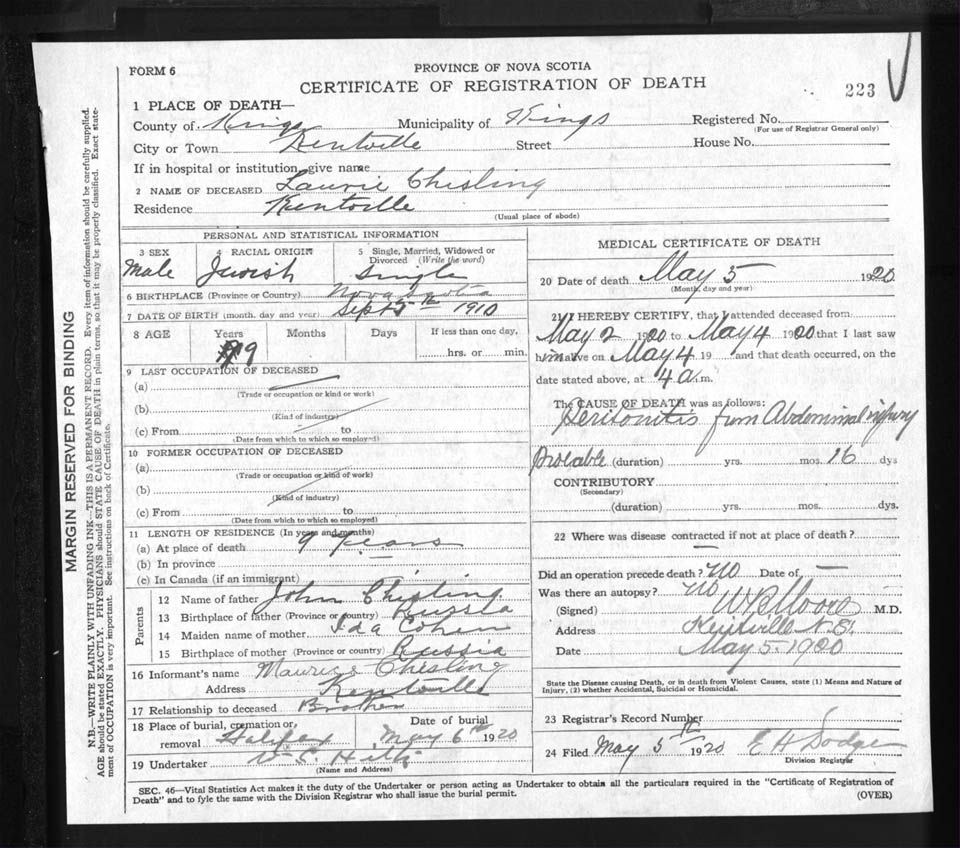 FORM 6
PROVINCE OF NOVA SCOTIA
CERTIFICATE OF REGISTRATION OF DEATH
223
1 PLACE OF DEATH—
County of Kings Municipality of Kings Registered No.
(For use of Registrar General only)
City or Town Kentville Street House No.
If in hospital or institution, give name
2 NAME OF DECEASED Laurie Chisling
Residence Kentville
(Usual place of abode)
PERSONAL AND STATISTICAL INFORMATION
3 SEX 4 RACIAL ORIGIN 5 Single, Married, Widowed or
Divorced (Write the word)
Male Jewish Single
6 BIRTHPLACE (Province or Country) Nova Scotia
7 DATE OF BIRTH (month, day and year) Sept 5th 1910
8 AGE Years Months Days If less than one day,
9 hrs. or min.
9 LAST OCCUPATION OF DECEASED
(a)
(Trade or occupation or kind of work)
(b)
(Kind of industry)
(c) From to
(Date from which to which so employed)
10 FORMER OCCUPATION OF DECEASED
(a)
(Trade or occupation or kind of work)
(b)
(Kind of industry)
(c) From to
(Date from which to which so employed)
11 LENGTH OF RESIDENCE (In years and months)
(a) At place of death 9 years
(b) In province —
(c) In Canada (if an immigrant)
Parents
12 Name of father John Chisling
13 Birthplace of father (Province or country) Russia
14 Maiden name of mother Ida Cohen
15 Birthplace of mother (Province or country) Russia
16 Informant's name Maurice Chisling
Address Kentville
17 Relationship to deceased Brother
18 Place of burial, cremation or Date of burial
removal Halifax May 6th 1920
19 Undertaker
(Name and Address)
MEDICAL CERTIFICATE OF DEATH
20 Date of death May 5 1920
(Month, day and year)
21 I HEREBY CERTIFY, that I attended deceased from
May 2 1920 to May 4 1920 that I last saw
him alive on May 4 19 and that death occurred, on the
date stated above, at 4 a.m.
The CAUSE OF DEATH was as follows:
Peritonitis from Abdominal injury
Probable (duration) yrs. mos. 16 dys
CONTRIBUTORY
(Secondary)
(duration) yrs. mos. dys.
22 Where was disease contracted if not at place of death?
—
Did an operation precede death? No Date of —
Was there an autopsy? No
(Signed) W B Moore M.D.
Address Kentville N.S.
Date May 5. 1920
State the Disease causing Death, or in death from Violent Causes, state (1) Means and Nature of
Injury, (2) whether Accidental, Suicidal or Homicidal.
23 Registrar's Record Number
24 Filed May 5th 1920 E H Dodge
Division Registrar
SEC. 46—Vital Statistics Act makes it the duty of the Undertaker or person acting as Undertaker to obtain all the particulars required in the "Certificate of Registration of
Death" and to fyle the same with the Division Registrar who shall issue the burial permit.
(OVER)
MARGIN RESERVED FOR BINDING
N.B.—WRITE PLAINLY WITH UNFADING INK—THIS IS A PERMANENT RECORD. Every item of information should be carefully supplied.
AGE should be stated EXACTLY. PHYSICIANS should STATE CAUSE OF DEATH in plain terms, so that it may be properly classified. Exact state-
ment of OCCUPATION is very important. See instructions on back of Certificate.